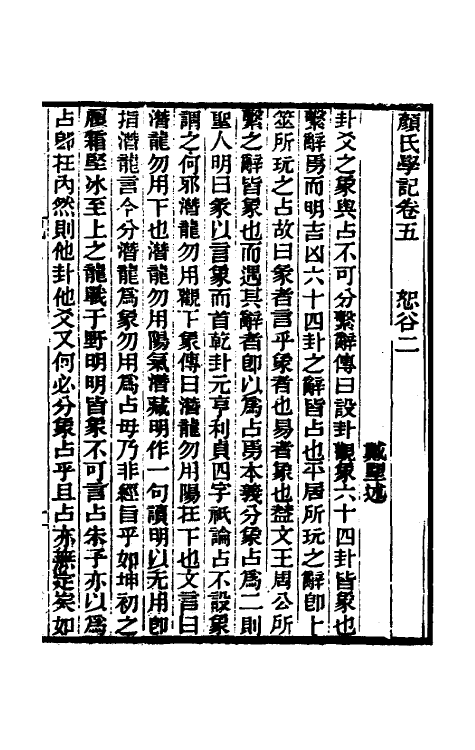 顏氏學記卷五　　恕谷二
戴望述
卦爻之象與占不可分繫辭傳曰設卦觀象六十四卦皆象也
繫辭焉而明吉凶六十四卦之辭皆占也平居所玩之辭卽卜
筮所玩之占故曰象者言乎象者也易者象也葢文王周公所
繫之辭皆象也而遇其辭者卽以爲占焉本義分象占爲二則
聖人明曰彖以言象而首乾卦元亨利貞四字祇論占不設象
謂之何耶潛龍勿用觀下象傳曰潛龍勿用陽在下也文言曰
潛龍勿用下也潛龍勿用陽氣潛藏明作一句讀明以无用卽
指潛龍言今分潛龍爲象勿用爲占毋乃非經旨乎如坤初之
履霜堅冰至上之龍戰于野明明皆象不可言占朱子亦以爲
占卽在內然則他卦他爻又何必分象占乎且占亦無定矣如